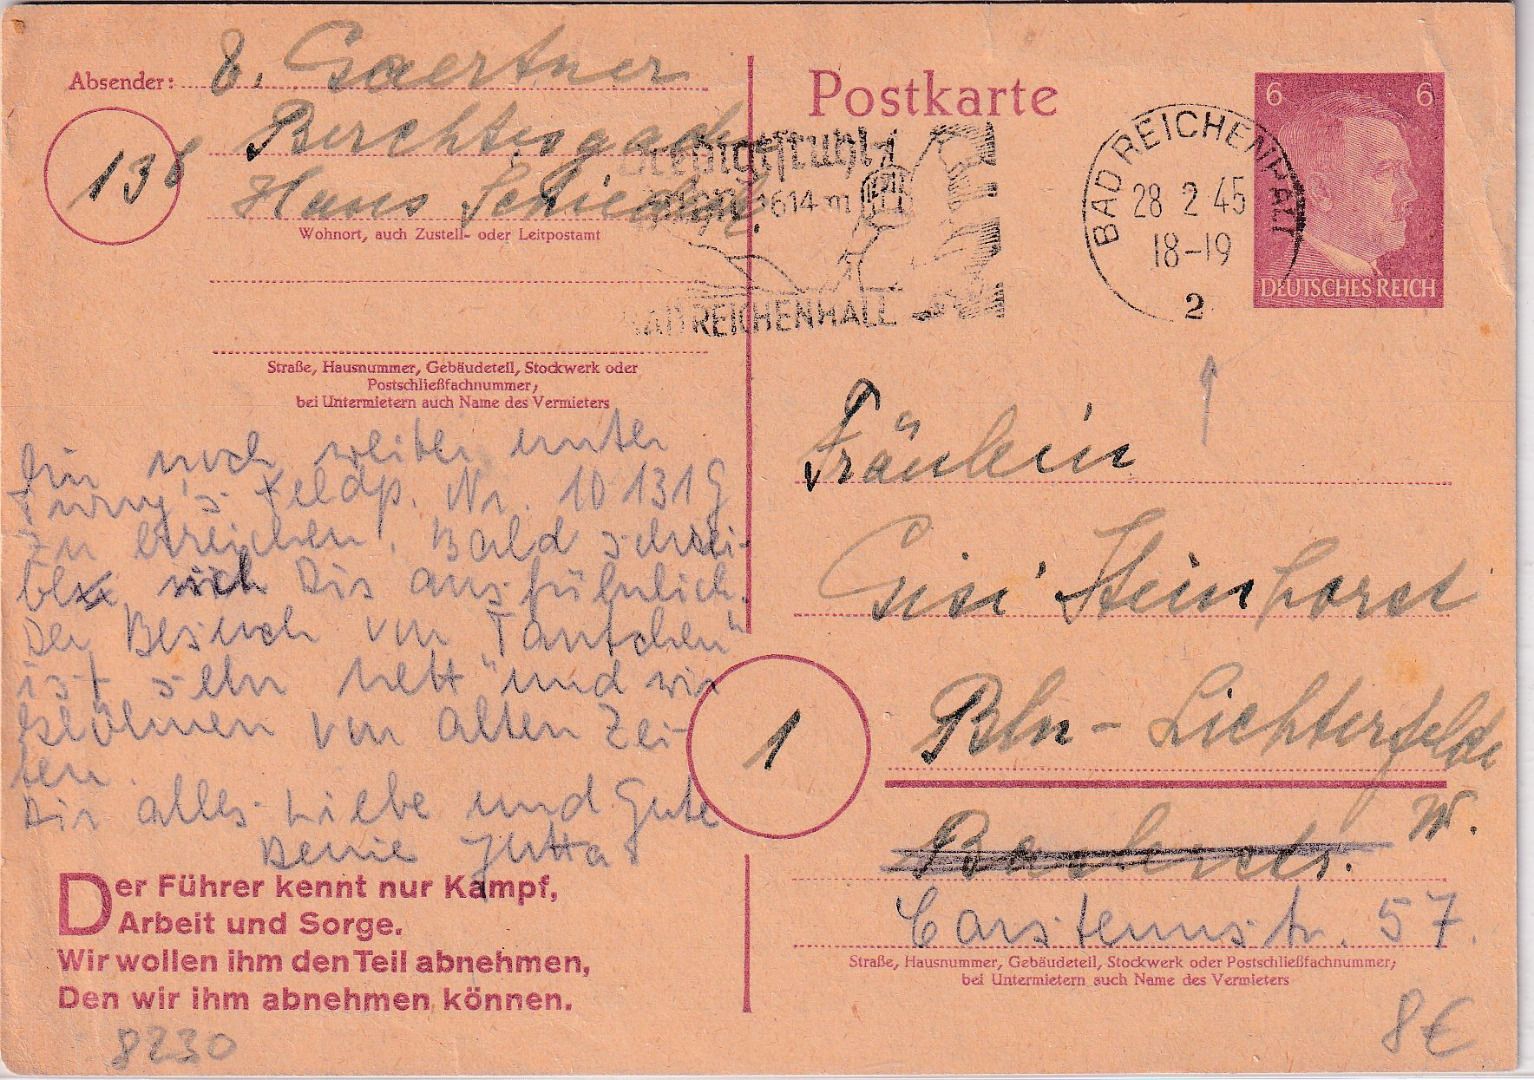 Absender:
Gaertner
13b
Berchtesgaden
Haus
Wohnort, auch Zustell- oder Leitpostamt
Straße, Hausnummer, Gebäudeteil, Stockwerk oder
Postschließfachnummer;
bei Untermietern auch Name des Vermieters
Postkarte
Predigtstuhl
1614 m
BAD REICHENHALL
BAD REICHENHALL
28 2 45
18-19
2
6 6
DEUTSCHES REICH
noch weiter unter
Feldp. Nr. 10131 G
zu erreichen. Bald schrei-
be ich Dir ausführlich.
Der Besuch von "Tantchen"
ist sehr nett und wir
von alten Zei-
ten.
Dir alles Liebe und Gute
Deine Jutta
Der Führer kennt nur Kampf,
Arbeit und Sorge.
Wir wollen ihm den Teil abnehmen,
Den wir ihm abnehmen können.
8230
Fräulein
Gisi Steinhorst
1
Bln-Lichterfelde
W.
Carstennstr. 57.
Straße, Hausnummer, Gebäudeteil, Stockwerk oder Postschließfachnummer;
bei Untermietern auch Name des Vermieters
8€